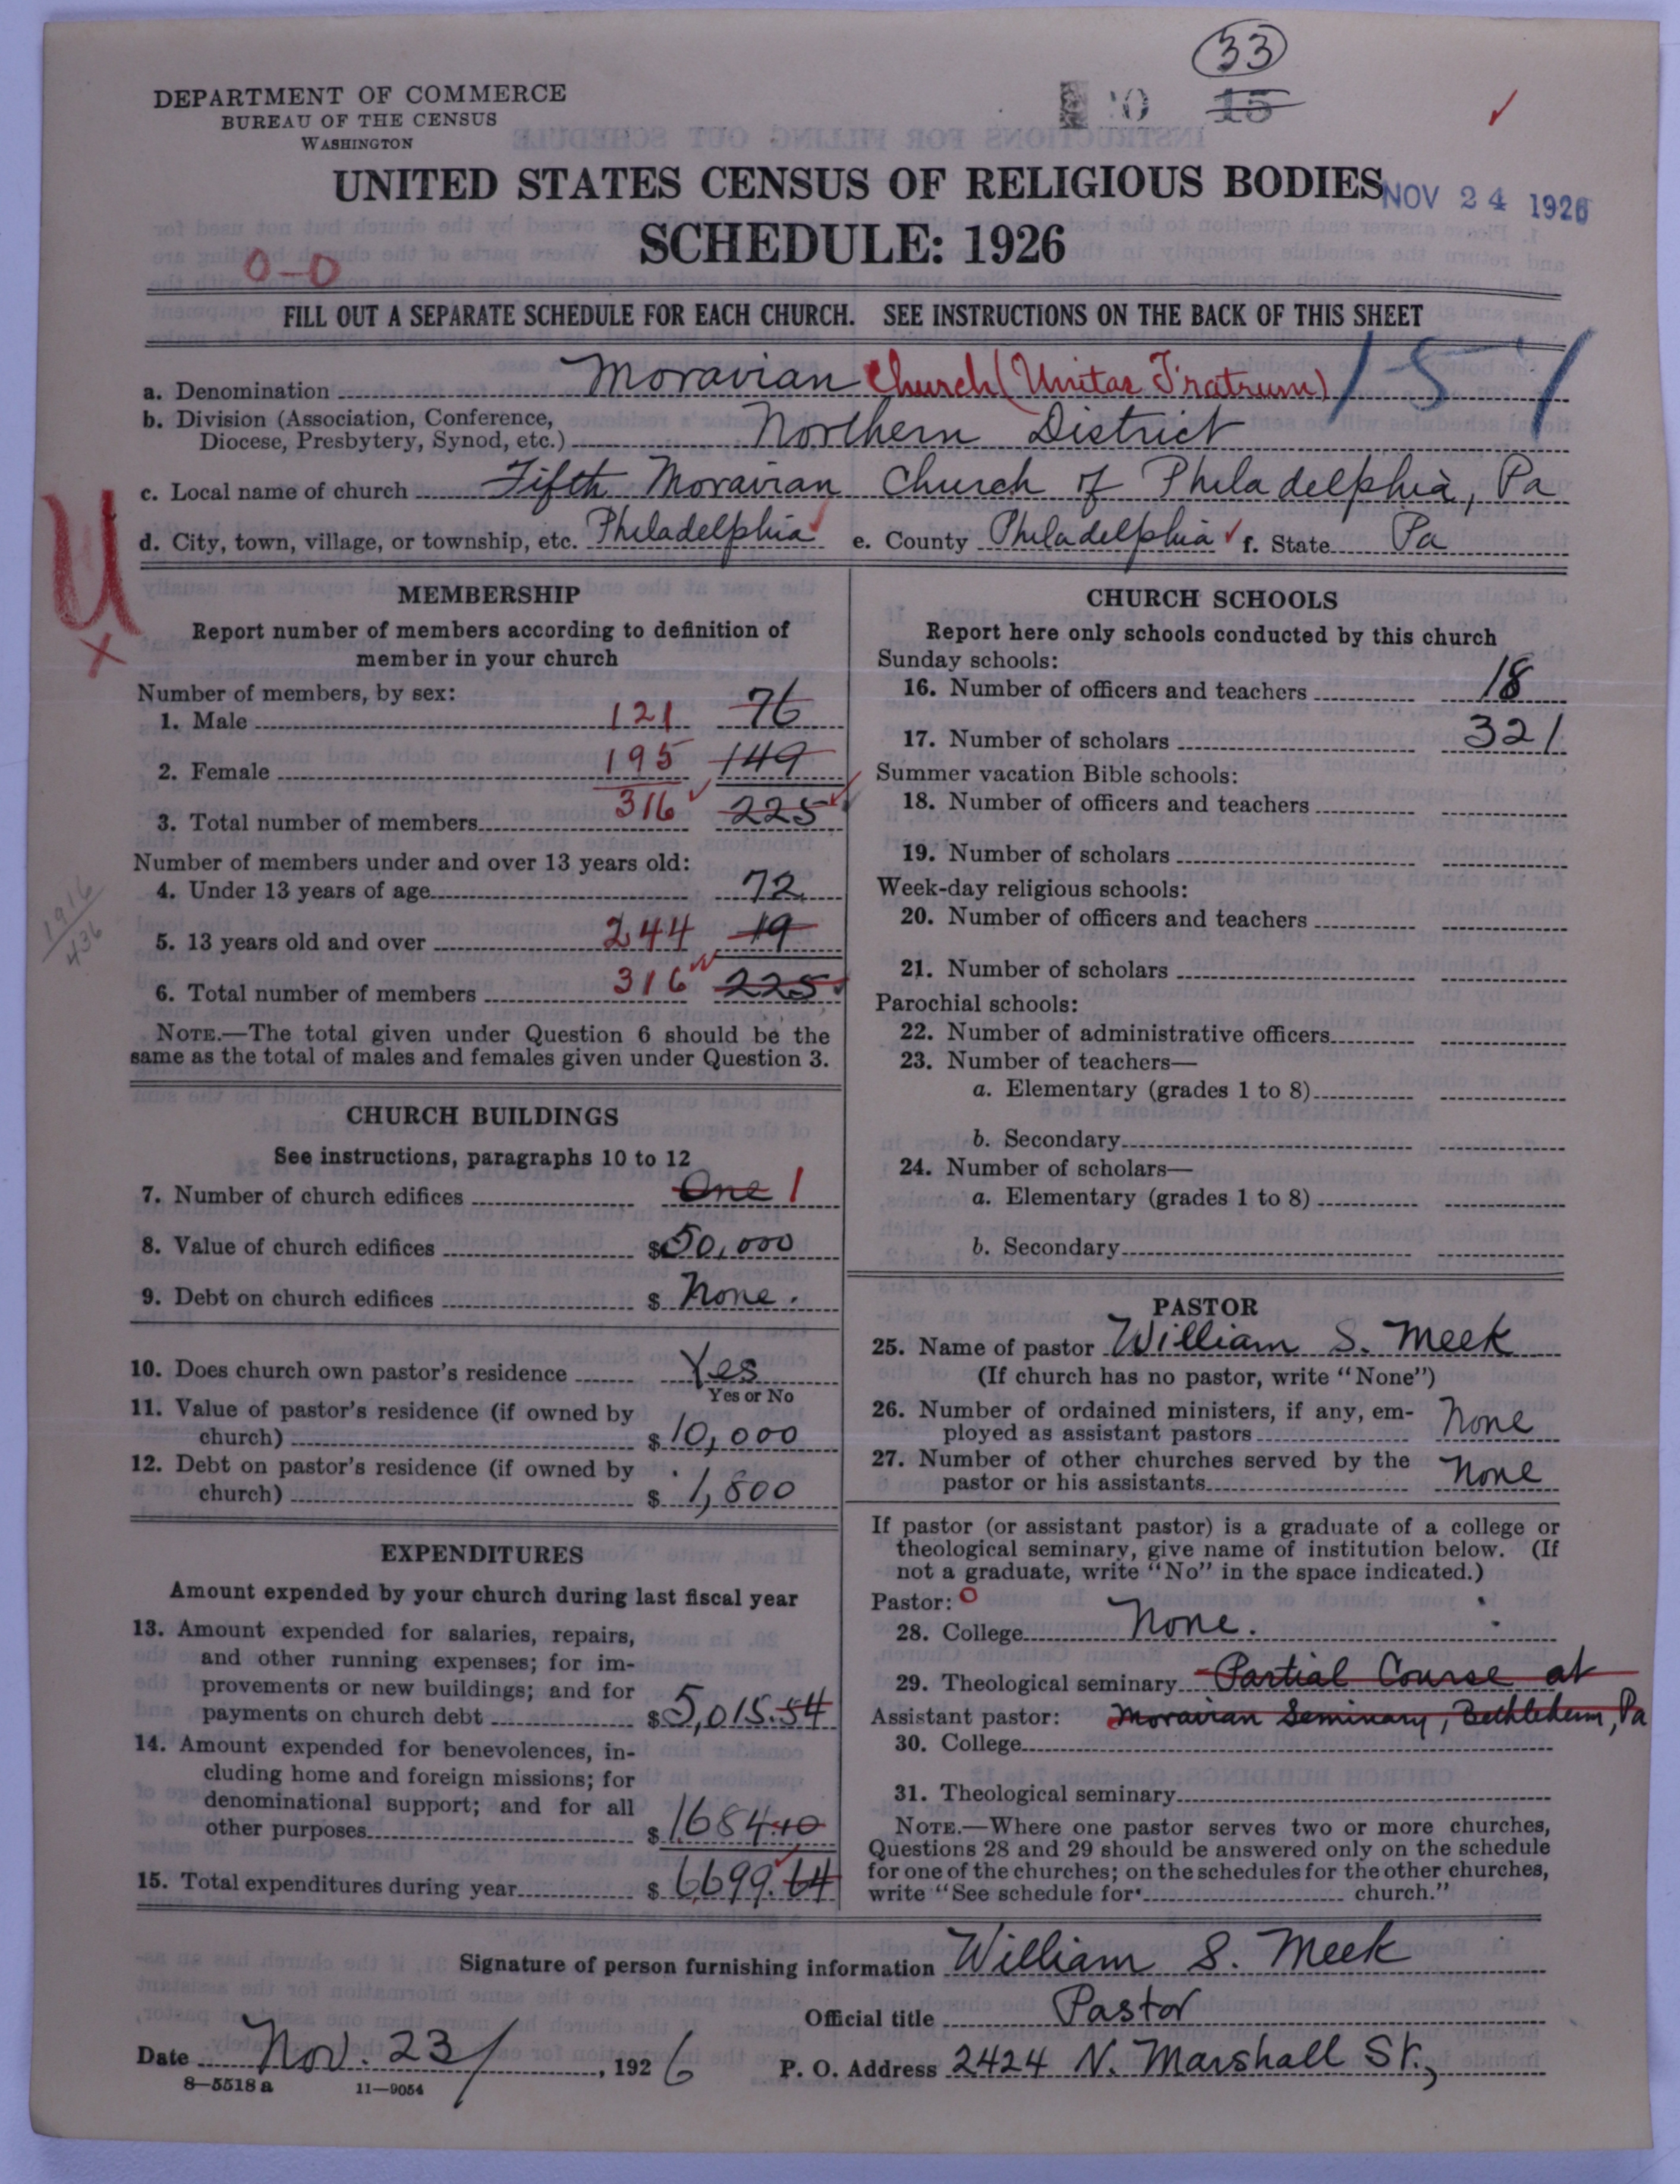 33
15
DEPARTMENT OF COMMERCE
BUREAU OF THE CENSUS
WASHINGTON
UNITED STATES CENSUS OF RELIGIOUS BODIES
NOV 24 1926
SCHEDULE: 1926
0-0
FILL OUT A SEPARATE SCHEDULE FOR EACH CHURCH. SEE INSTRUCTIONS ON THE BACK OF THIS SHEET
a. Denomination Moravian Church (Unitas Fratrum)
b. Division (Association, Conference,
Diocese, Presbytery, Synod, etc.) Northern District
c. Local name of church Fifth Moravian Church of Philadelphia, Pa
d. City, town, village, or township, etc. Philadelphia e. County Philadelphia f. State Pa
U
x
MEMBERSHIP
Report number of members according to definition of
member in your church
Number of members, by sex:
1. Male 121 76
2. Female 195 149
3. Total number of members 316 225
Number of members under and over 13 years old:
4. Under 13 years of age 72
5. 13 years old and over 244 19
6. Total number of members 316 225
1916
436
NOTE.—The total given under Question 6 should be the
same as the total of males and females given under Question 3.
CHURCH BUILDINGS
See instructions, paragraphs 10 to 12
7. Number of church edifices One 1
8. Value of church edifices $50,000
9. Debt on church edifices $ None.
10. Does church own pastor's residence Yes
Yes or No
11. Value of pastor's residence (if owned by
church) $10,000
12. Debt on pastor's residence (if owned by
church) $ 1,800
EXPENDITURES
Amount expended by your church during last fiscal year
13. Amount expended for salaries, repairs,
and other running expenses; for im-
provements or new buildings; and for
payments on church debt $5,015.54
14. Amount expended for benevolences, in-
cluding home and foreign missions; for
denominational support; and for all
other purposes $1684.10
15. Total expenditures during year $6699.64
CHURCH SCHOOLS
Report here only schools conducted by this church
Sunday schools:
16. Number of officers and teachers 18
17. Number of scholars 321
Summer vacation Bible schools:
18. Number of officers and teachers
19. Number of scholars
Week-day religious schools:
20. Number of officers and teachers
21. Number of scholars
Parochial schools:
22. Number of administrative officers
23. Number of teachers—
a. Elementary (grades 1 to 8)
b. Secondary
24. Number of scholars—
a. Elementary (grades 1 to 8)
b. Secondary
PASTOR
25. Name of pastor William S. Meek
(If church has no pastor, write "None")
26. Number of ordained ministers, if any, em-
ployed as assistant pastors None
27. Number of other churches served by the
pastor or his assistants None
If pastor (or assistant pastor) is a graduate of a college or
theological seminary, give name of institution below. (If
not a graduate, write "No" in the space indicated.)
Pastor: 0
28. College None.
29. Theological seminary Partial Course at
Assistant pastor: Moravian Seminary, Bethlehem, Pa
30. College
31. Theological seminary
NOTE.—Where one pastor serves two or more churches,
Questions 28 and 29 should be answered only on the schedule
for one of the churches; on the schedules for the other churches,
write "See schedule for church."
Signature of person furnishing information William S. Meek
Official title Pastor
Date Nov. 23, 1926 P. O. Address 2424 N. Marshall St.,
8—5518 a 11—9054